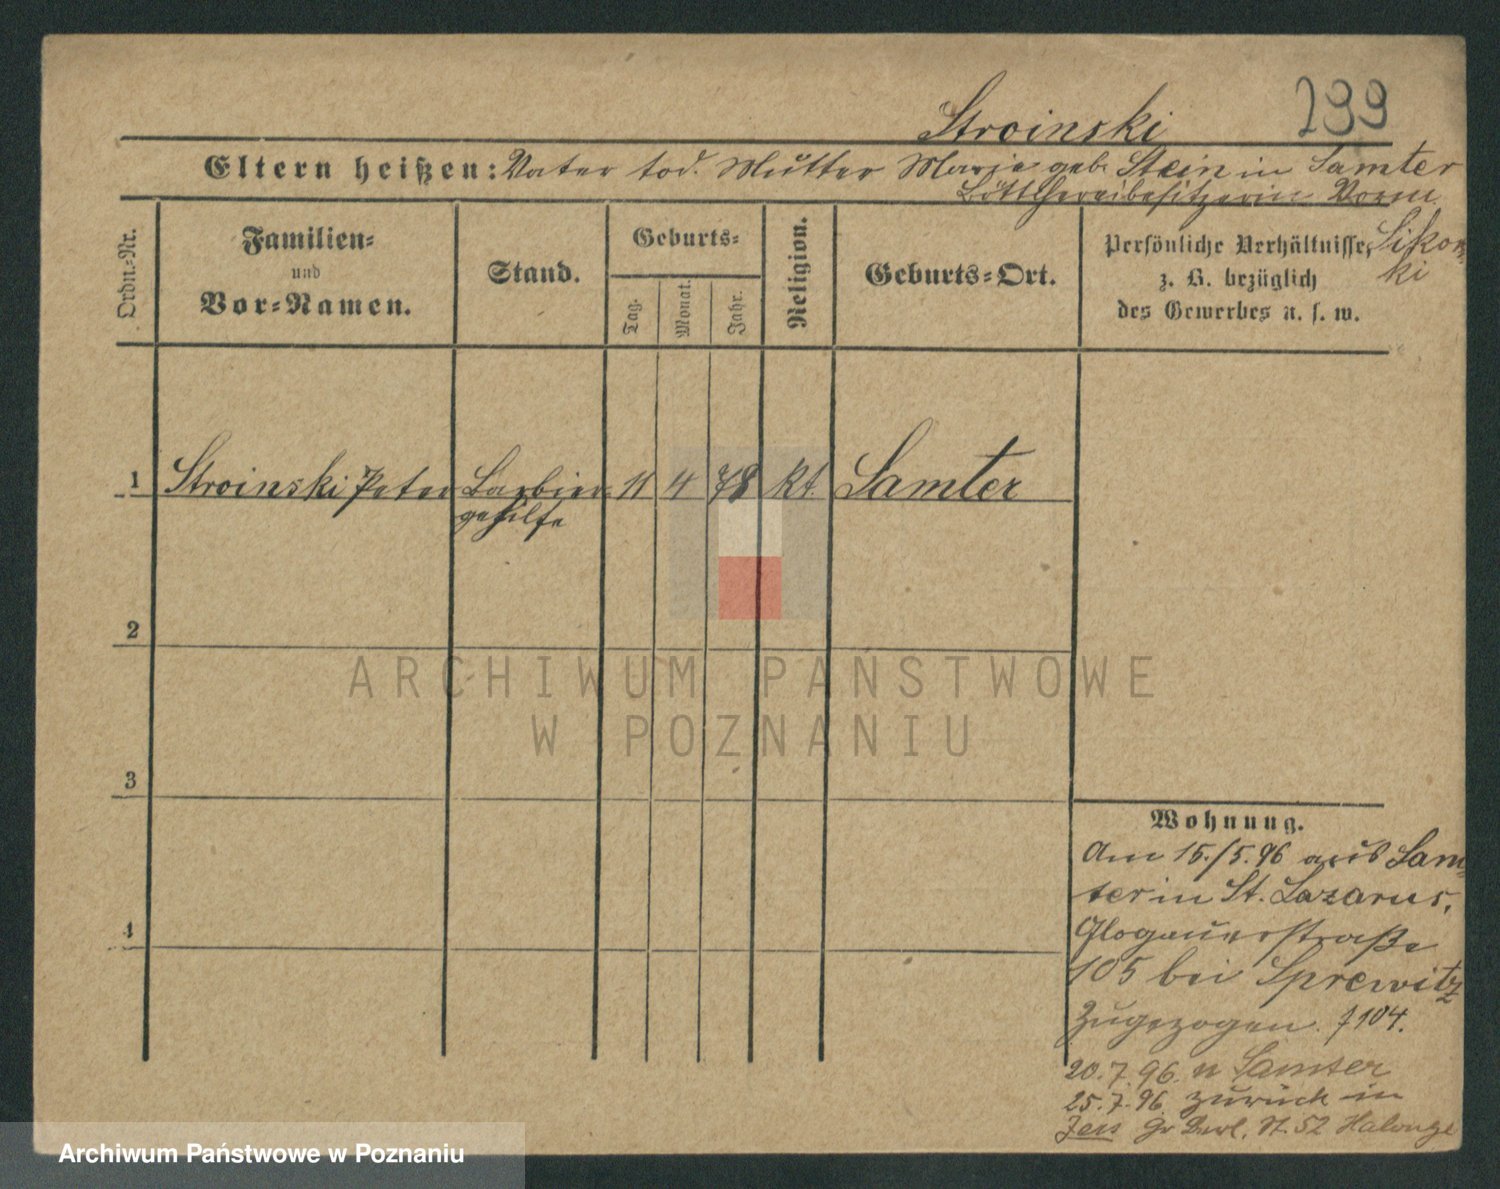 Stroinski
799
Eltern heißen: Vater tod. Mutter Marie geb. Stein in Samter
Böttchereibesitzerin Vorm.
Sikor-
ski
Ordn.-Nr.
Familien-
und
Vor-Namen.
Stand.
Geburts-
Tag.
Monat.
Jahr.
Religion.
Geburts-Ort.
Persönliche Verhältnisse,
z. B. bezüglich
des Gewerbes u. s. w.
1 Stroinski Peter Barbier 11 4 78 kt. Samter
gehilfe
2
ARCHIWUM PAŃSTWOWE
W POZNANIU
3
4
Wohnung.
Am 15./5.96 aus Sam-
ter in St. Lazarus,
Glogauerstraße
105 bei Sprewitz
Zugezogen. J 104.
20.7.96. n Samter
25.7.96 zurück in
52
Archiwum Państwowe w Poznaniu